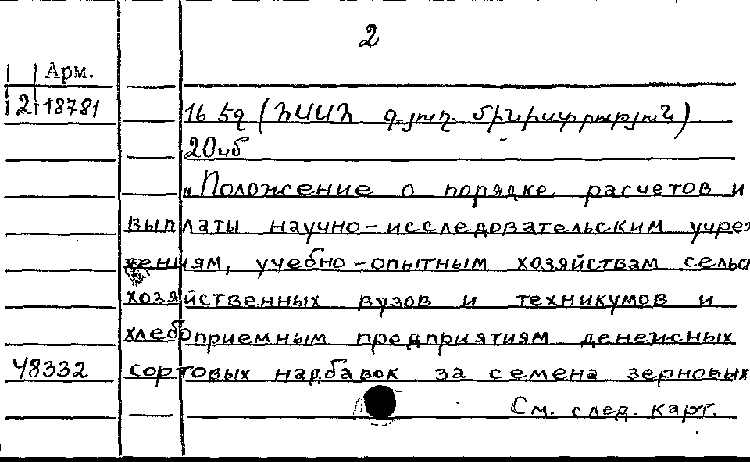 2
Арм.
2 18781
16 52 (ՀՍՍՀ գյուղ. մինիստրություն)
20սմ
„Положение о порядке расчетов и
выплаты научно-исследовательским учреж
жениям, учебно-опытным хозяйствам сельс
хозяйственных вузов и техникумов и
хлебоприемным предприятиям денежных
48332 сортовых надбавок за семена зерновых
См. след. карт.